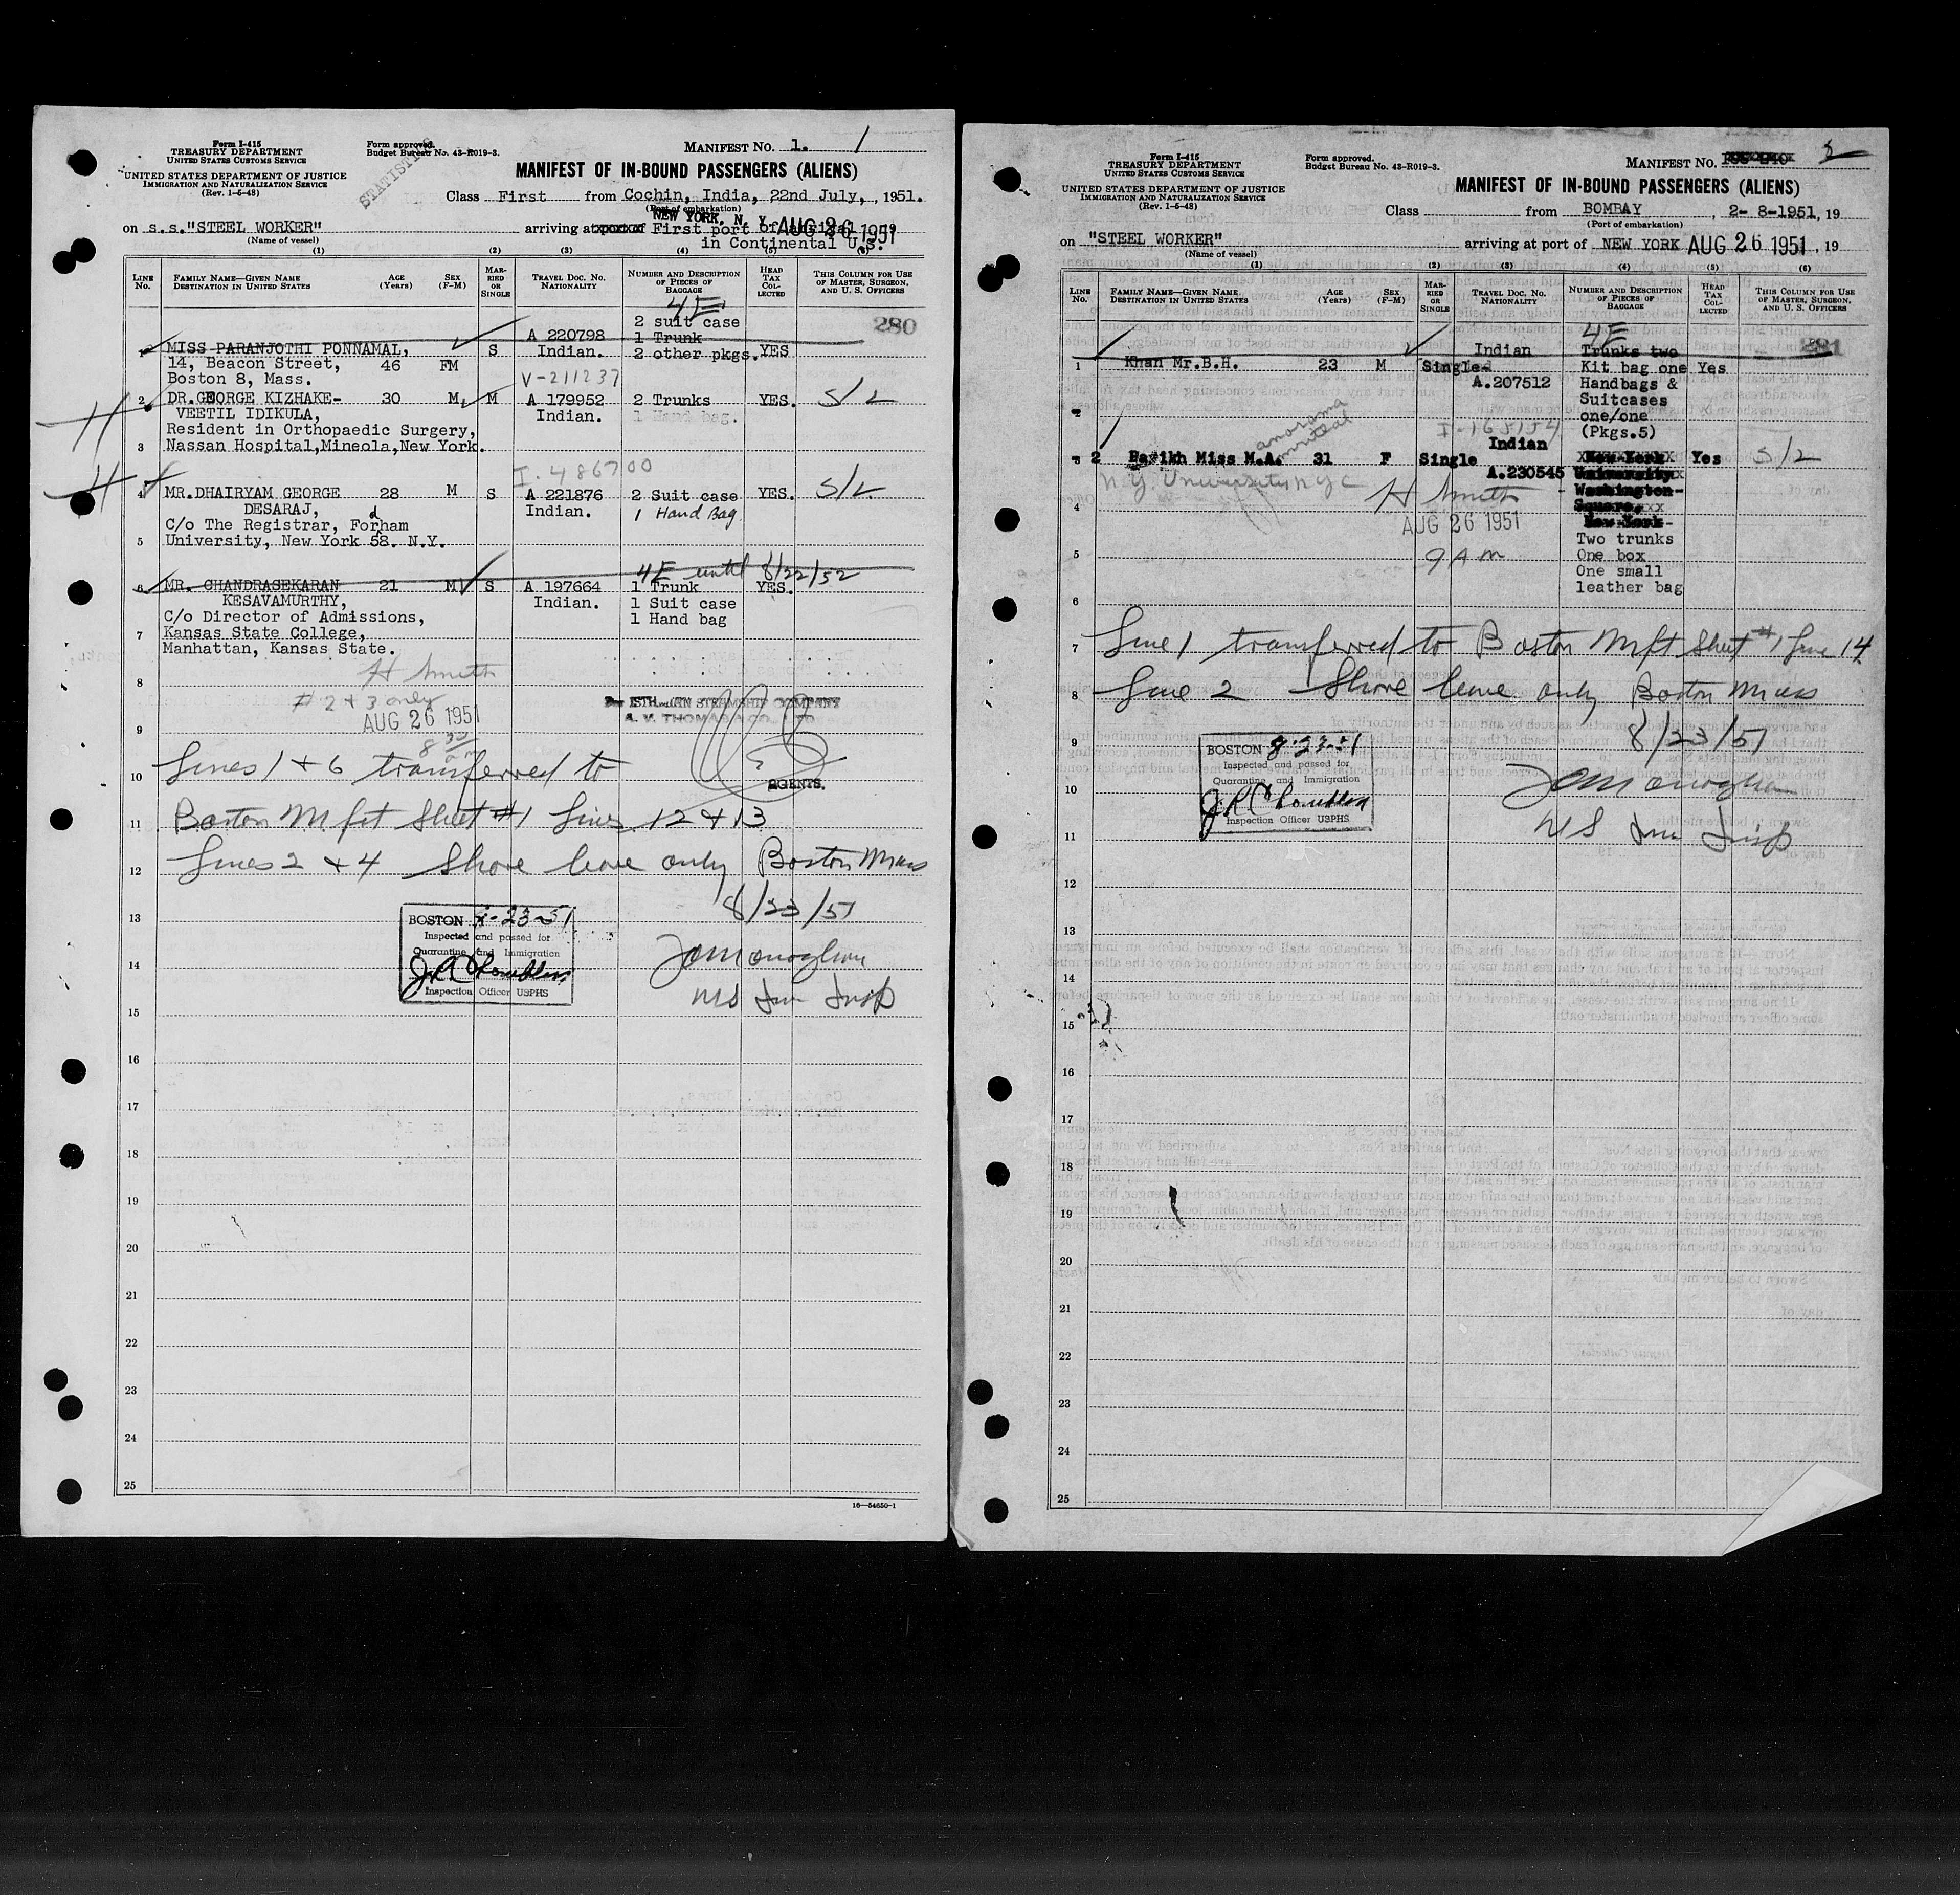 Form I-415
TREASURY DEPARTMENT
UNITED STATES CUSTOMS SERVICE
UNITED STATES DEPARTMENT OF JUSTICE
IMMIGRATION AND NATURALIZATION SERVICE
(Rev. 1-5-48)
Form approved.
Budget Bureau No. 43-R019-3.
STATISTICS
MANIFEST NO. 1. 1
MANIFEST OF IN-BOUND PASSENGERS (ALIENS)
Class First from Cochin, India, 22nd July, , 1951.
(Port of embarkation)
NEW YORK, N. Y. AUG 26 1951
on s.s."STEEL WORKER" arriving at First port of arrival
(Name of vessel)
in Continental U.S.
(1) (2) (3) (4) (5) (6)
LINE No. FAMILY NAME—GIVEN NAME DESTINATION IN UNITED STATES AGE (Years) SEX (F-M) MARRIED OR SINGLE TRAVEL DOC. NO. NATIONALITY NUMBER AND DESCRIPTION OF PIECES OF BAGGAGE HEAD TAX COLLECTED THIS COLUMN FOR USE OF MASTER, SURGEON, AND U. S. OFFICERS
4E
280
2 suit case
A 220798 1 Trunk
1 MISS PARANJOTHI PONNAMAL, S Indian. 2 other pkgs. YES
14, Beacon Street, 46 FM
Boston 8, Mass. V-211237
2 DR.GEORGE KIZHAKE- 30 M M A 179952 2 Trunks YES. S/L
VEETIL IDIKULA, Indian. 1 Hand bag.
Resident in Orthopaedic Surgery,
3 Nassan Hospital,Mineola,New York.
I. 486700
4 MR.DHAIRYAM GEORGE 28 M S A 221876 2 Suit case YES. S/L
DESARAJ, Indian. 1 Hand Bag
C/o The Registrar, Forham
d
5 University, New York 58. N.Y.
4E until 8/22/52
6 MR. CHANDRASEKARAN 21 M S A 197664 1 Trunk YES.
KESAVAMURTHY, Indian. 1 Suit case
C/o Director of Admissions, 1 Hand bag
7 Kansas State College,
Manhattan, Kansas State.
H Smith
8
# 2 + 3 only
ISTHMIAN STEAMSHIP COMPANY
AUG 26 1951
A. V. THOMAS & CO., LTD
9
8 30 am
10 Lines 1 + 6 transferred to
AGENTS.
11 Boston Mfst Sheet #1 Lines 12 + 13
12 Lines 2 + 4 Shore leave only Boston Mass
8/23/51
13
BOSTON 8-23-51
Inspected and passed for
Quarantine and Immigration
14
Inspection Officer USPHS
JAMonaghan
US Imm Insp
15
16
17
18
19
20
21
22
23
24
25
16—54650-1
Form I-415
TREASURY DEPARTMENT
UNITED STATES CUSTOMS SERVICE
UNITED STATES DEPARTMENT OF JUSTICE
IMMIGRATION AND NATURALIZATION SERVICE
(Rev. 1-5-48)
Form approved.
Budget Bureau No. 43-R019-3.
MANIFEST NO. 2
MANIFEST OF IN-BOUND PASSENGERS (ALIENS)
Class from BOMBAY , 2-8-1951, 19
(Port of embarkation)
on "STEEL WORKER" arriving at port of NEW YORK AUG 26 1951 , 19
(Name of vessel)
(1) (2) (3) (4) (5) (6)
LINE No. FAMILY NAME—GIVEN NAME DESTINATION IN UNITED STATES AGE (Years) SEX (F-M) MARRIED OR SINGLE TRAVEL DOC. NO. NATIONALITY NUMBER AND DESCRIPTION OF PIECES OF BAGGAGE HEAD TAX COLLECTED THIS COLUMN FOR USE OF MASTER, SURGEON, AND U. S. OFFICERS
4E
281
Indian Trunks two
1 Khan Mr.B.H. 23 M Single Kit bag one Yes
A.207512 Handbags &
Suitcases
2 one/one
(Pkgs.5)
Indian
3 2 Parikh Miss M.A. 31 F Single New York Yes S/L
A.230545 University
N.Y. University NYC
H Smith
Washington-
Square,
4
AUG 26 1951
New York-
Two trunks
5 9 am One box
One small
leather bag
6
7 Line 1 transferred to Boston Mfst Sheet #1 Line 14
8 Line 2 Shore leave only Boston Mass
8/23/51
9
BOSTON 8-23-51
Inspected and passed for
Quarantine and Immigration
10
JAMonaghan
Inspection Officer USPHS
US Imm Insp
11
12
13
14
15
16
17
18
19
20
21
22
23
24
25